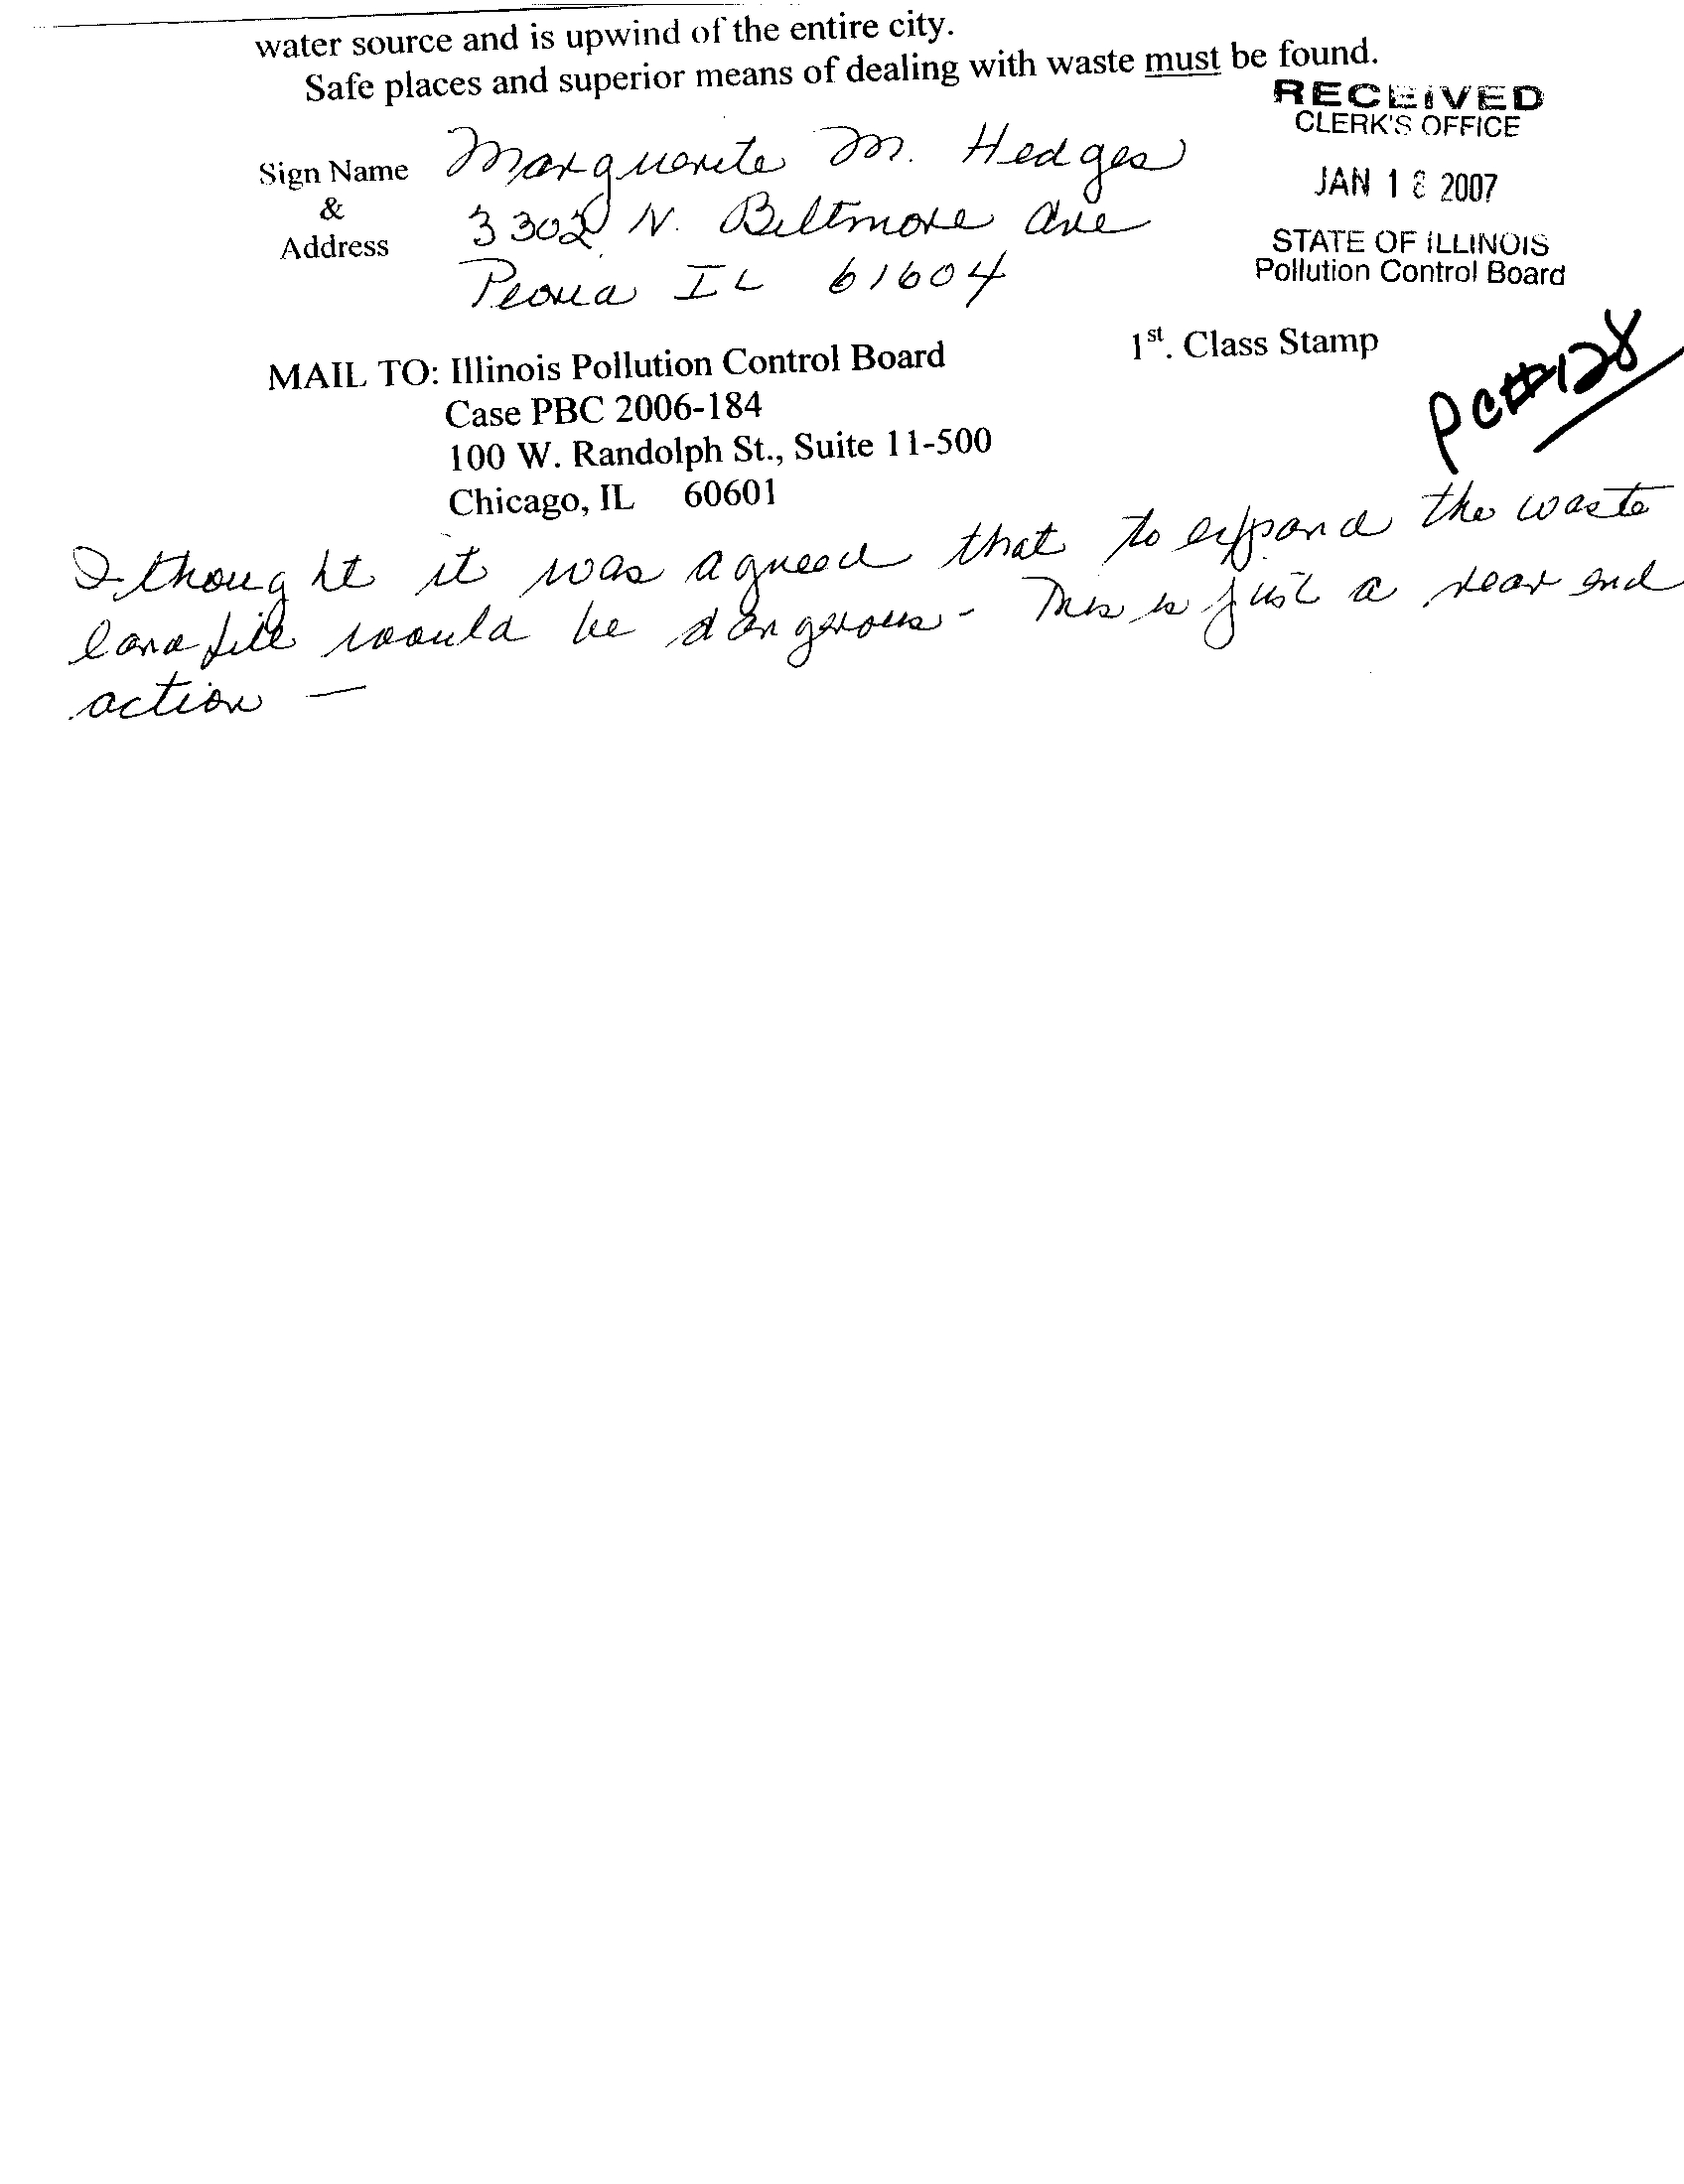 water source and is upwind of the entire city.
Safe places and superior means of dealing with waste must be found.
RECEIVED
CLERK'S OFFICE
JAN 18 2007
STATE OF ILLINOIS
Pollution Control Board
Sign Name
&
Address
Marguerite M. Hedges
3302 N. Biltmore Ave
Peoria IL 61604
MAIL TO: Illinois Pollution Control Board
Case PBC 2006-184
100 W. Randolph St., Suite 11-500
Chicago, IL 60601
1st. Class Stamp
PC#128
I thought it was agreed that to expand the waste
landfill would be dangerous - This is just a rear end
action —